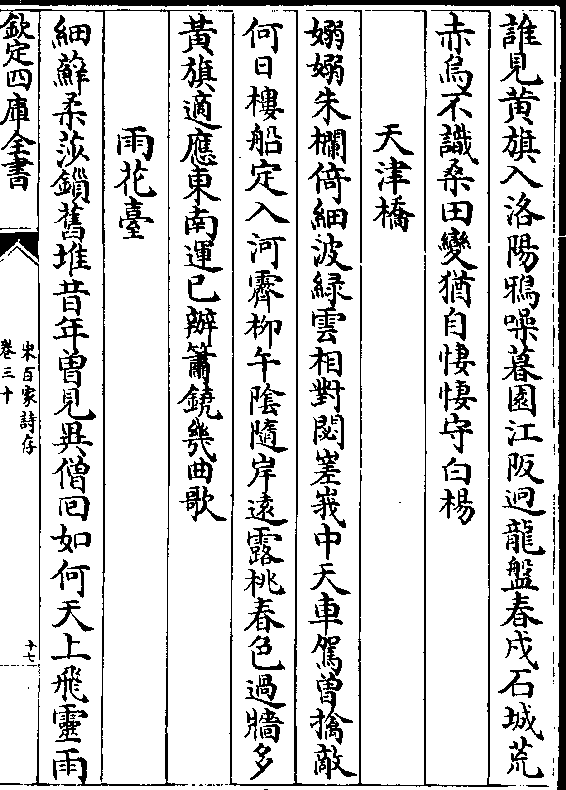 誰見黄旗入洛陽鴉噪暮園江阪迥龍盤春戍石城荒
赤烏不識桑田變猶自悽悽守白楊
天津橋
嫋嫋朱欄倚細波緑雲相對閟嵳峩中天車駕曽擒敵
何日樓船定入河霽柳午陰隨岸逺露桃春色過牆多
黄旗適應東南運已辦簫鐃㡬曲歌
雨花臺
細蘚柔莎鎻舊堆昔年曽見異僧囘如何天上飛靈雨
欽定四庫全書
宋百家詩存
卷三十
十七